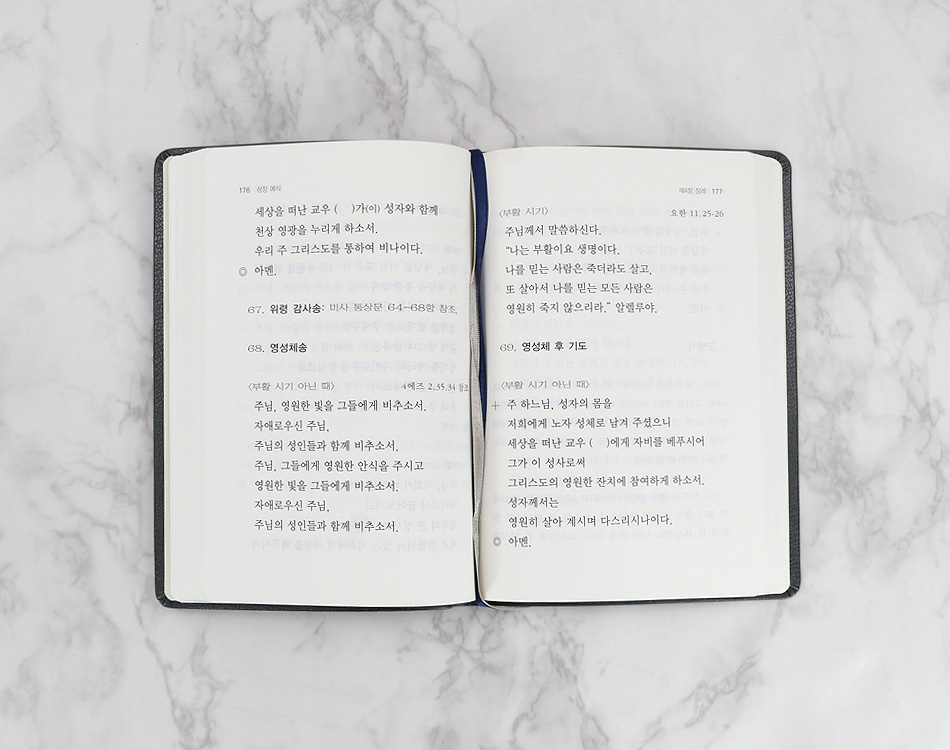 176 상장 예식
세상을 떠난 교우 (    )가(이) 성자와 함께
천상 영광을 누리게 하소서.
우리 주 그리스도를 통하여 비나이다.
◎ 아멘.
67. 위령 감사송: 미사 통상문 64-68항 참조.
68. 영성체송
〈부활 시기 아닌 때〉 4에즈 2,35.34 참조
주님, 영원한 빛을 그들에게 비추소서.
자애로우신 주님,
주님의 성인들과 함께 비추소서.
주님, 그들에게 영원한 안식을 주시고
영원한 빛을 그들에게 비추소서.
자애로우신 주님,
주님의 성인들과 함께 비추소서.
제4장 장례 177
〈부활 시기〉 요한 11,25-26
주님께서 말씀하신다.
“나는 부활이요 생명이다.
나를 믿는 사람은 죽더라도 살고,
또 살아서 나를 믿는 모든 사람은
영원히 죽지 않으리라.” 알렐루야.
69. 영성체 후 기도
〈부활 시기 아닌 때〉
+ 주 하느님, 성자의 몸을
저희에게 노자 성체로 남겨 주셨으니
세상을 떠난 교우 (    )에게 자비를 베푸시어
그가 이 성사로써
그리스도의 영원한 잔치에 참여하게 하소서.
성자께서는
영원히 살아 계시며 다스리시나이다.
◎ 아멘.